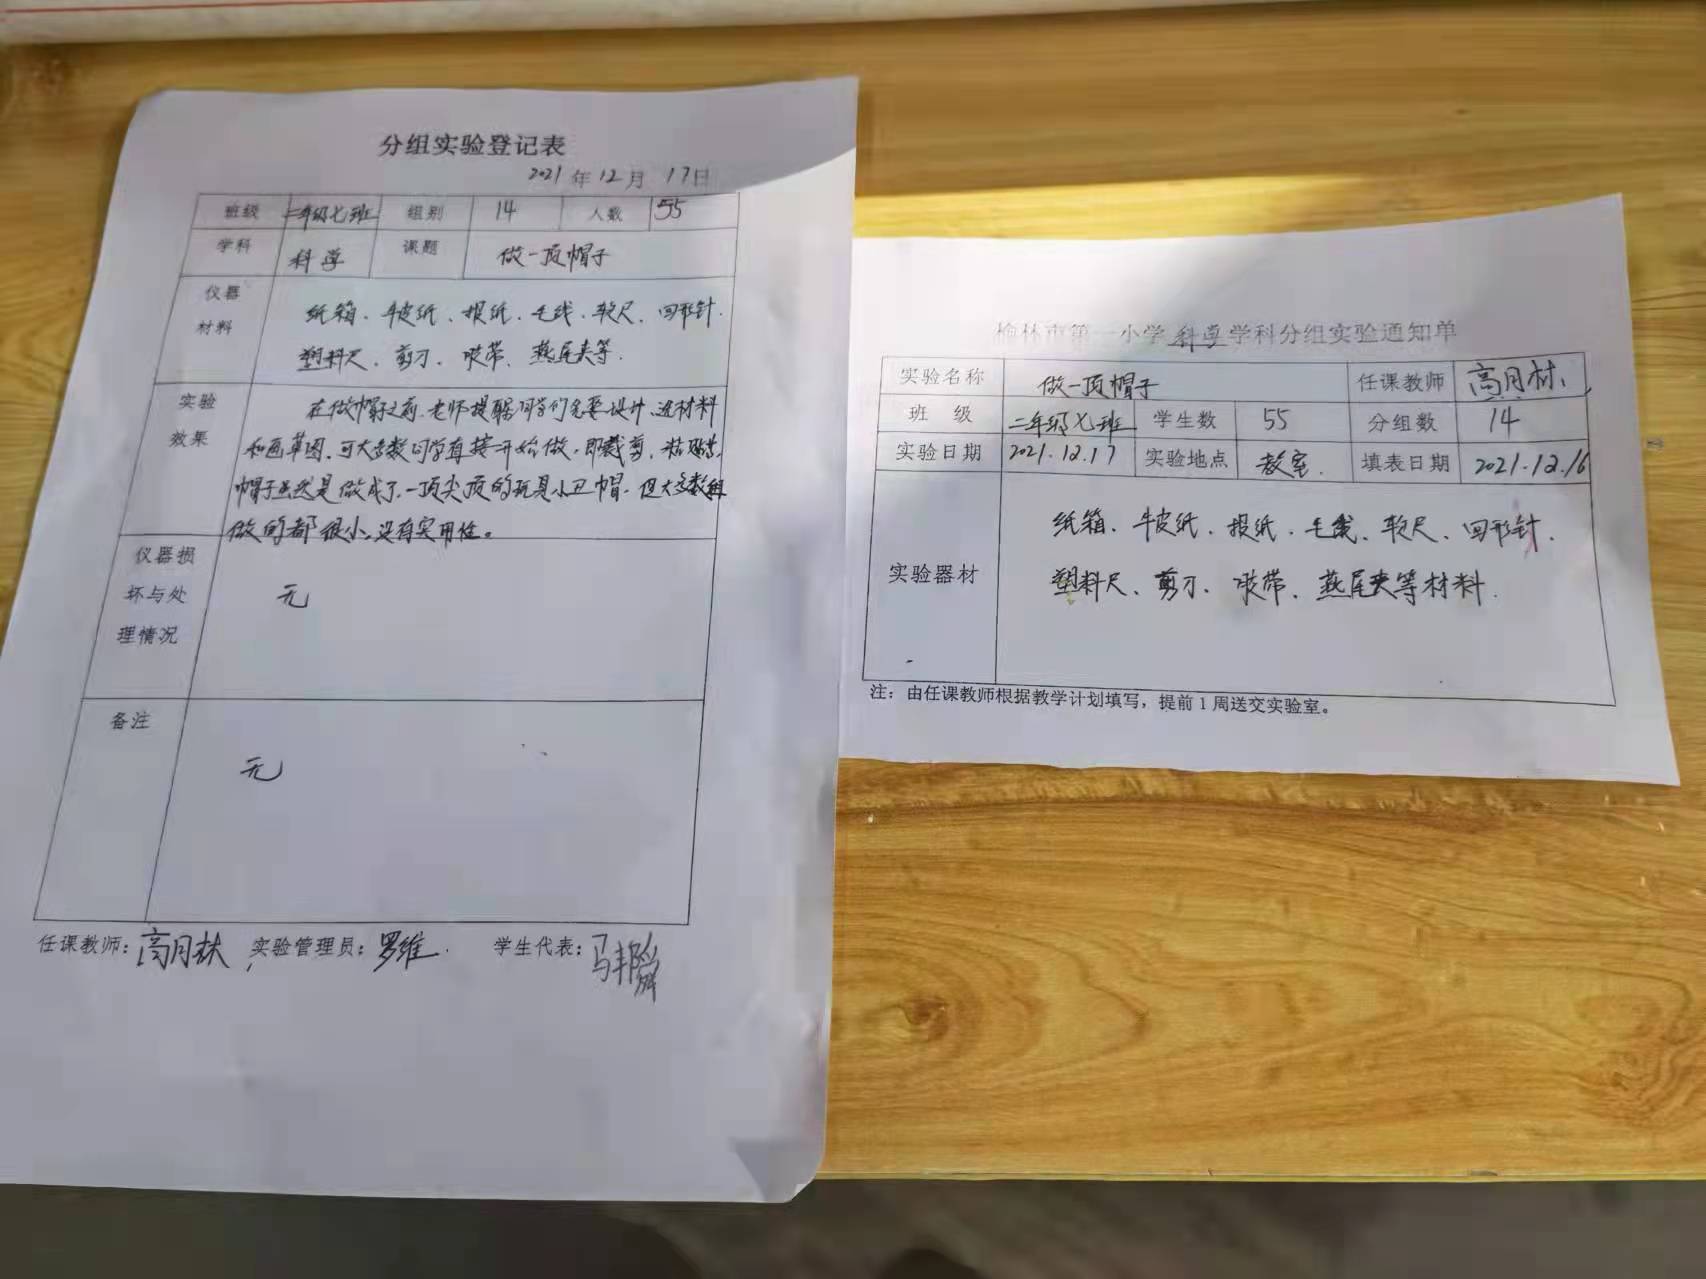 分组实验登记表
2021年12月17日
班级 二年级七班 组别 14 人数 55
学科 科学 课题 做一顶帽子
仪器材料 纸箱、牛皮纸、报纸、毛线、软尺、回形针、
塑料尺、剪刀、胶带、燕尾夹等.
实验效果 在做帽子之前,老师提醒同学们先要设计、选材料
和画草图,可大多数同学直接开始做,即裁剪,粘贴,
帽子虽然是做成了,一顶尖顶的玩具小丑帽,但大多数组
做的都很小,没有实用性。
仪器损坏与处理情况 无
备注 无
任课教师: 高月林 实验管理员: 罗维. 学生代表: 马邦
榆林市第一小学科学学科分组实验通知单
实验名称 做一顶帽子 任课教师 高月林
班 级 二年级七班 学生数 55 分组数 14
实验日期 2021.12.17 实验地点 教室. 填表日期 2021.12.16
实验器材 纸箱、牛皮纸、报纸、毛线、软尺、回形针、
塑料尺、剪刀、胶带、燕尾夹等材料.
注:由任课教师根据教学计划填写,提前1周送交实验室。